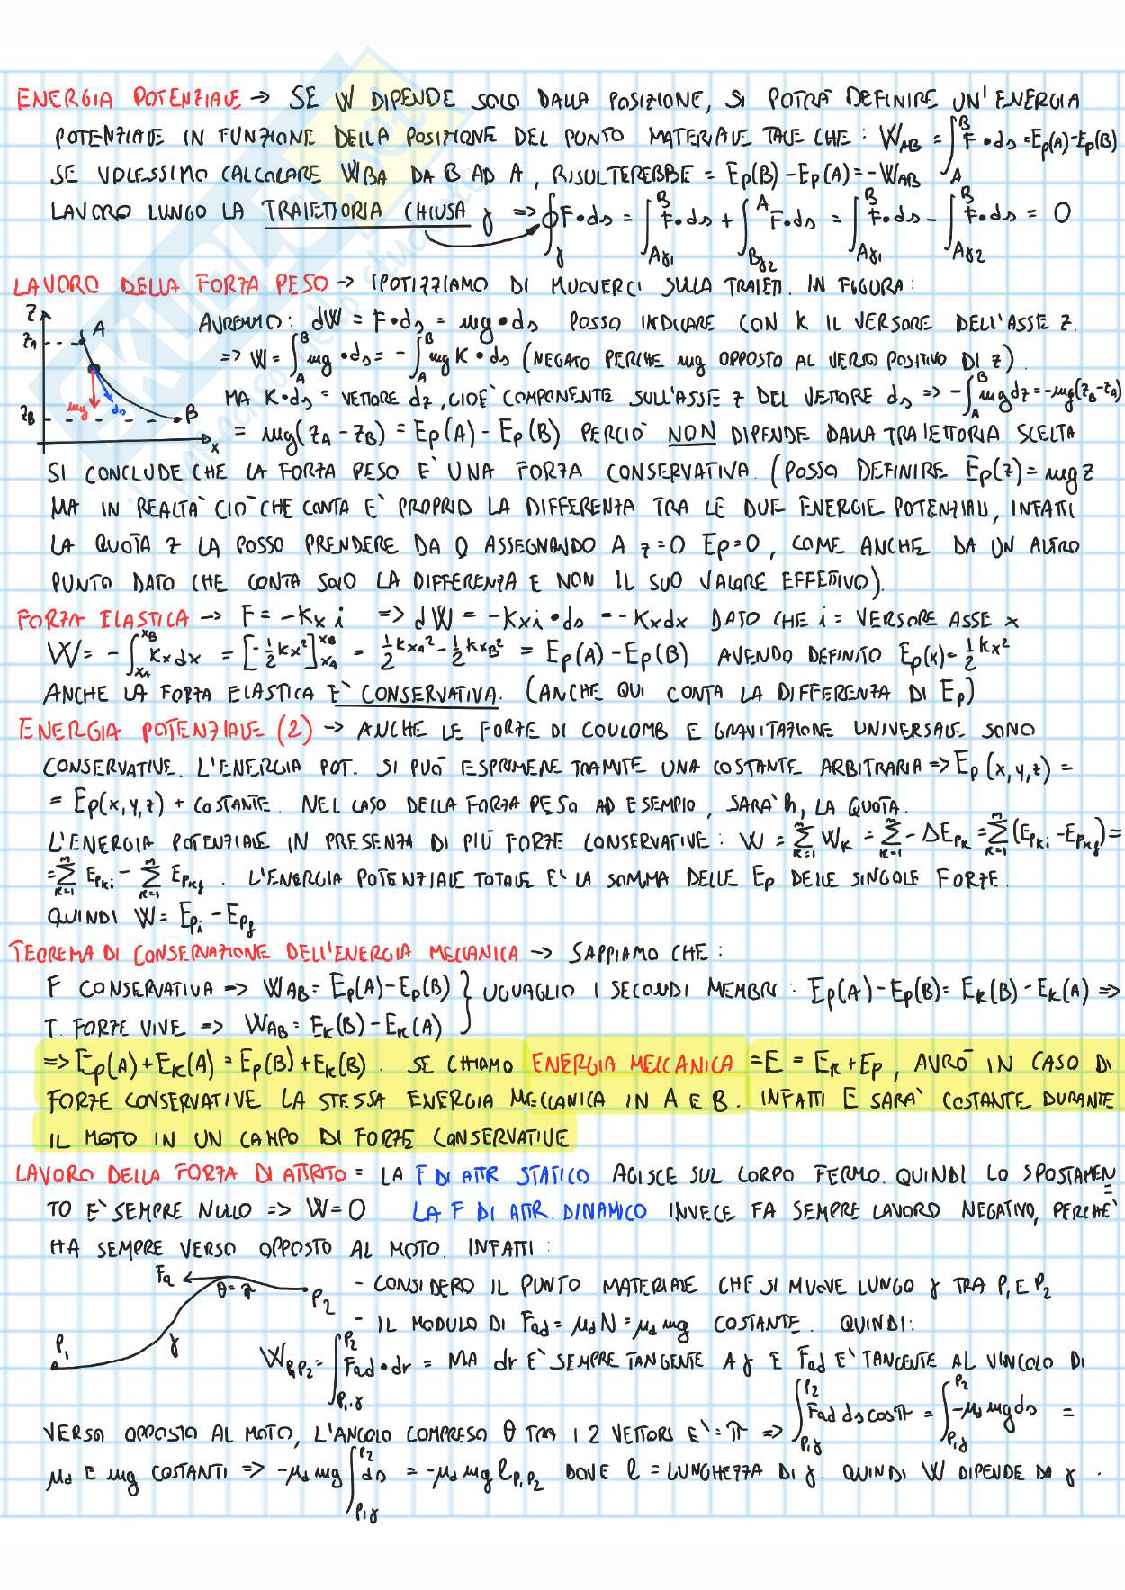 ENERGIA POTENZIALE → SE W DIPENDE SOLO DALLA POSIZIONE, SI POTRÀ DEFINIRE UN'ENERGIA
POTENZIALE IN FUNZIONE DELLA POSIZIONE DEL PUNTO MATERIALE TALE CHE: W_AB = ∫_A^B F·ds = Ep(A)-Ep(B)
SE VOLESSIMO CALCOLARE W_BA DA B AD A, RISULTEREBBE = Ep(B)-Ep(A) = -W_AB
LAVORO LUNGO LA TRAIETTORIA CHIUSA γ => ∮_γ F·ds = ∫_Aγ1^B F·ds + ∫_Bγ2^A F·ds = ∫_Aγ1^B F·ds - ∫_Aγ2^B F·ds = 0
LAVORO DELLA FORZA PESO → IPOTIZZIAMO DI MUOVERCI SULLA TRAIETT. IN FIGURA:
z
zA
A
mg
ds
zB
B
x
AVREMO: dW = F·ds = mg·ds POSSO INDICARE CON K IL VERSORE DELL'ASSE z.
=> W = ∫_A^B mg·ds = -∫_A^B mg K·ds (NEGATO PERCHE mg OPPOSTO AL VERSO POSITIVO DI z).
MA K·ds = VETTORE dz, CIOÈ COMPONENTE SULL'ASSE z DEL VETTORE ds => -∫_A^B mg dz = -mg(zB-zA)
= mg(zA-zB) = Ep(A)-Ep(B) PERCIÒ NON DIPENDE DALLA TRAIETTORIA SCELTA
SI CONCLUDE CHE LA FORZA PESO E' UNA FORZA CONSERVATIVA. (POSSO DEFINIRE Ep(z) = mgz
MA IN REALTÀ CIÒ CHE CONTA E' PROPRIO LA DIFFERENZA TRA LE DUE ENERGIE POTENZIALI, INFATTI
LA QUOTA z LA POSSO PRENDERE DA 0 ASSEGNANDO A z=0 Ep=0, COME ANCHE DA UN ALTRO
PUNTO DATO CHE CONTA SOLO LA DIFFERENZA E NON IL SUO VALORE EFFETTIVO).
FORZA ELASTICA → F = -Kx i => dW = -Kxi·ds = -Kxdx DATO CHE i = VERSORE ASSE x
W = -∫_xA^xB Kxdx = [-1/2 kx²]_xA^xB = 1/2 kxA² - 1/2 kxB² = Ep(A)-Ep(B) AVENDO DEFINITO Ep(x) = 1/2 kx²
ANCHE LA FORZA ELASTICA E' CONSERVATIVA. (ANCHE QUI CONTA LA DIFFERENZA DI Ep)
ENERGIA POTENZIALE (2) → ANCHE LE FORZE DI COULOMB E GRAVITAZIONE UNIVERSALE SONO
CONSERVATIVE. L'ENERGIA POT. SI PUÒ ESPRIMERE TRAMITE UNA COSTANTE ARBITRARIA => Ep(x,y,z) =
= Ep(x,y,z) + COSTANTE. NEL CASO DELLA FORZA PESO AD ESEMPIO, SARÀ h, LA QUOTA.
L'ENERGIA POTENZIALE IN PRESENZA DI PIÙ FORZE CONSERVATIVE: W = Σ_{K=1}^n W_K = Σ_{K=1}^n -ΔEp_K = Σ_{K=1}^n (Ep_Ki - Ep_Kf) =
= Σ_{K=1}^n Ep_Ki - Σ_{K=1}^n Ep_Kf. L'ENERGIA POTENZIALE TOTALE E' LA SOMMA DELLE Ep DELLE SINGOLE FORZE.
QUINDI W = Ep_i - Ep_f
TEOREMA DI CONSERVAZIONE DELL'ENERGIA MECCANICA → SAPPIAMO CHE:
F CONSERVATIVA => W_AB = Ep(A)-Ep(B) } UGUAGLIO I SECONDI MEMBRI: Ep(A)-Ep(B) = Ek(B)-Ek(A) =>
T. FORZE VIVE => W_AB = Ek(B)-Ek(A)
=> Ep(A)+Ek(A) = Ep(B)+Ek(B). SE CHIAMO ENERGIA MECCANICA = E = Ek+Ep, AVRÒ IN CASO DI
FORZE CONSERVATIVE LA STESSA ENERGIA MECCANICA IN A E B. INFATTI E SARÀ COSTANTE DURANTE
IL MOTO IN UN CAMPO DI FORZE CONSERVATIVE
LAVORO DELLA FORZA DI ATTRITO = LA F DI ATTR STATICO AGISCE SUL CORPO FERMO. QUINDI LO SPOSTAMEN
TO E' SEMPRE NULLO => W=0 LA F DI ATTR. DINAMICO INVECE FA SEMPRE LAVORO NEGATIVO, PERCHE'
HA SEMPRE VERSO OPPOSTO AL MOTO. INFATTI:
Fa
θ=π
P2
P1
γ
- CONSIDERO IL PUNTO MATERIALE CHE SI MUOVE LUNGO γ TRA P1 E P2
- IL MODULO DI Fad = μd N = μd mg COSTANTE. QUINDI:
W_P1P2 = ∫_P1,γ^P2 Fad·dr = MA dr E' SEMPRE TANGENTE A γ E Fad E' TANGENTE AL VINCOLO DI
VERSO OPPOSTO AL MOTO, L'ANGOLO COMPRESO θ TRA I 2 VETTORI E' = π => ∫_P1γ^P2 Fad ds cosπ = ∫_P1γ^P2 -μd mg ds =
μd E mg COSTANTI => -μd mg ∫_P1γ^P2 ds = -μd mg ℓ_P1P2 DOVE ℓ = LUNGHEZZA DI γ QUINDI W DIPENDE DA γ.